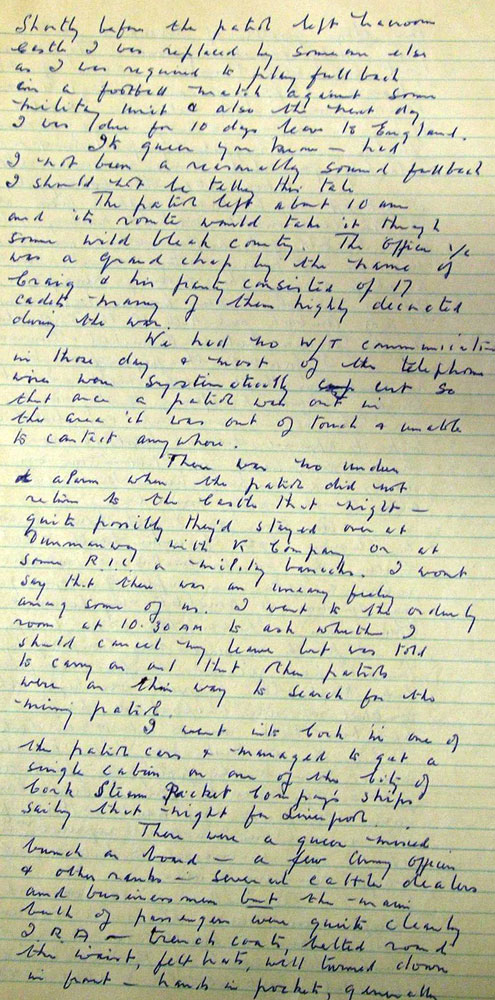 Shortly before the patrol left Macroom
Castle I was replaced by someone else
as I was required to play full back
in a football match against some
military unit & also the next day
I was due for 10 days leave to England.
Its queer you know – had
I not been a reasonally sound fullback
I should not be telling this tale
The patrol left about 10 am
and its route would take it through
some wild bleak country. The Officer i/c
was a grand chap by the name of
Craig & his party consisted of 17
cadets many of them highly decorated
during the war.
We had no W/T communication
in those day & most of the telephone
wires were systematically cut so
that once a patrol was out in
the area it was out of touch & unable
to contact anywhere.
There was no undue
alarm when the patrol did not
return to the Castle that night –
quite possibly they'd stayed over at
Dunmanway with K Company or at
some R I C or military barracks. I wont
say that there was an uneasy feeling
among some of us. I went to the orderly
room at 10.30 AM to ask whether I
should cancel my leave but was told
to carry on and that other patrols
were on their way to search for the
missing patrol.
I went into Cork in one of
the patrol cars & managed to get a
single cabin on one of the City of
Cork Steam Packet Company's ships
sailing that night for Liverpool.
There were a queer mixed
bunch on board – a few Army officers
& other ranks – several cattle dealers
and businessmen but the main
bulk of passengers were quite clearly
I R A – trench coats, belted round
the waist, felt hats, well turned down
in front – hands in pockets, generally